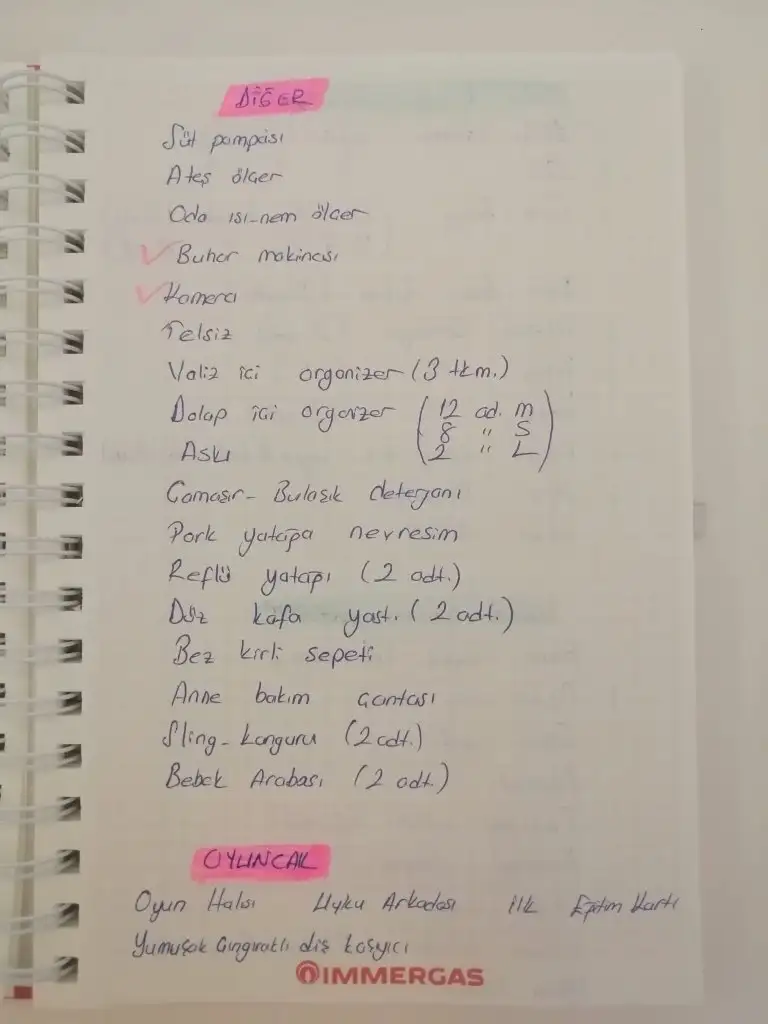 DİĞER
Süt pompası
Ateş ölçer
Oda ısı-nem ölçer
Buhar makinası
Kamera
Telsiz
Valiz içi organizer (3 tkm.)
Dolap içi organzer (12 ad. m
8 " S
Askı 2 " L)
Çamaşır - Bulaşık deterjanı
Park yatağa nevresim
Reflü yatağı (2 adt.)
Düz kafa yast. (2 adt.)
Bez kirli sepeti
Anne bakım çantası
Sling - kanguru (2 adt.)
Bebek Arabası (2 adt.)
OYUNCAK
Oyun Halısı Uyku Arkadaşı İlk Eğitim Kartı
Yumuşak Çıngıraklı diş kaşıyıcı
IMMERGAS